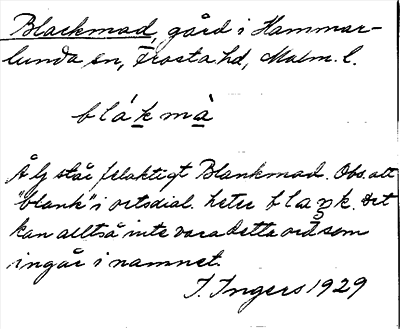 Blackmad, gård i Hammar-
lunda sn, Frosta hd, Malm. l.
blák mà
Å Gj står felaktigt Blankmad. Obs. att
"blank" i ortsdial. heter blaŋk. Det
kan alltså inte vara detta ord som
ingår i namnet.
I. Ingers 1929